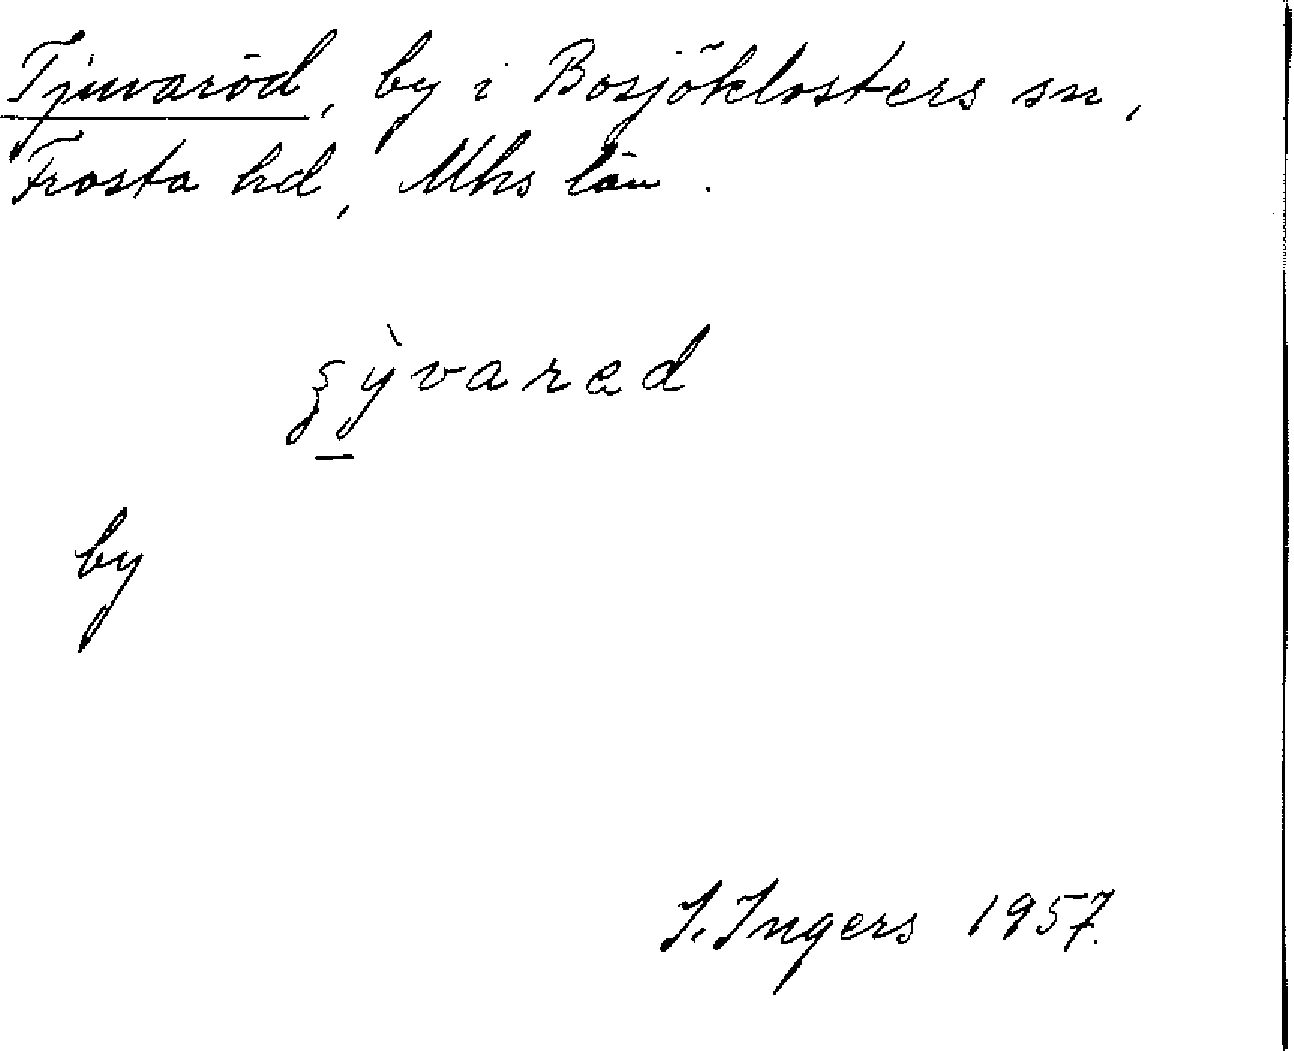 Tjuvaröd, by i Bosjöklosters sn,
Frosta hd, Mhs län.
by
I. Ingers 1957.